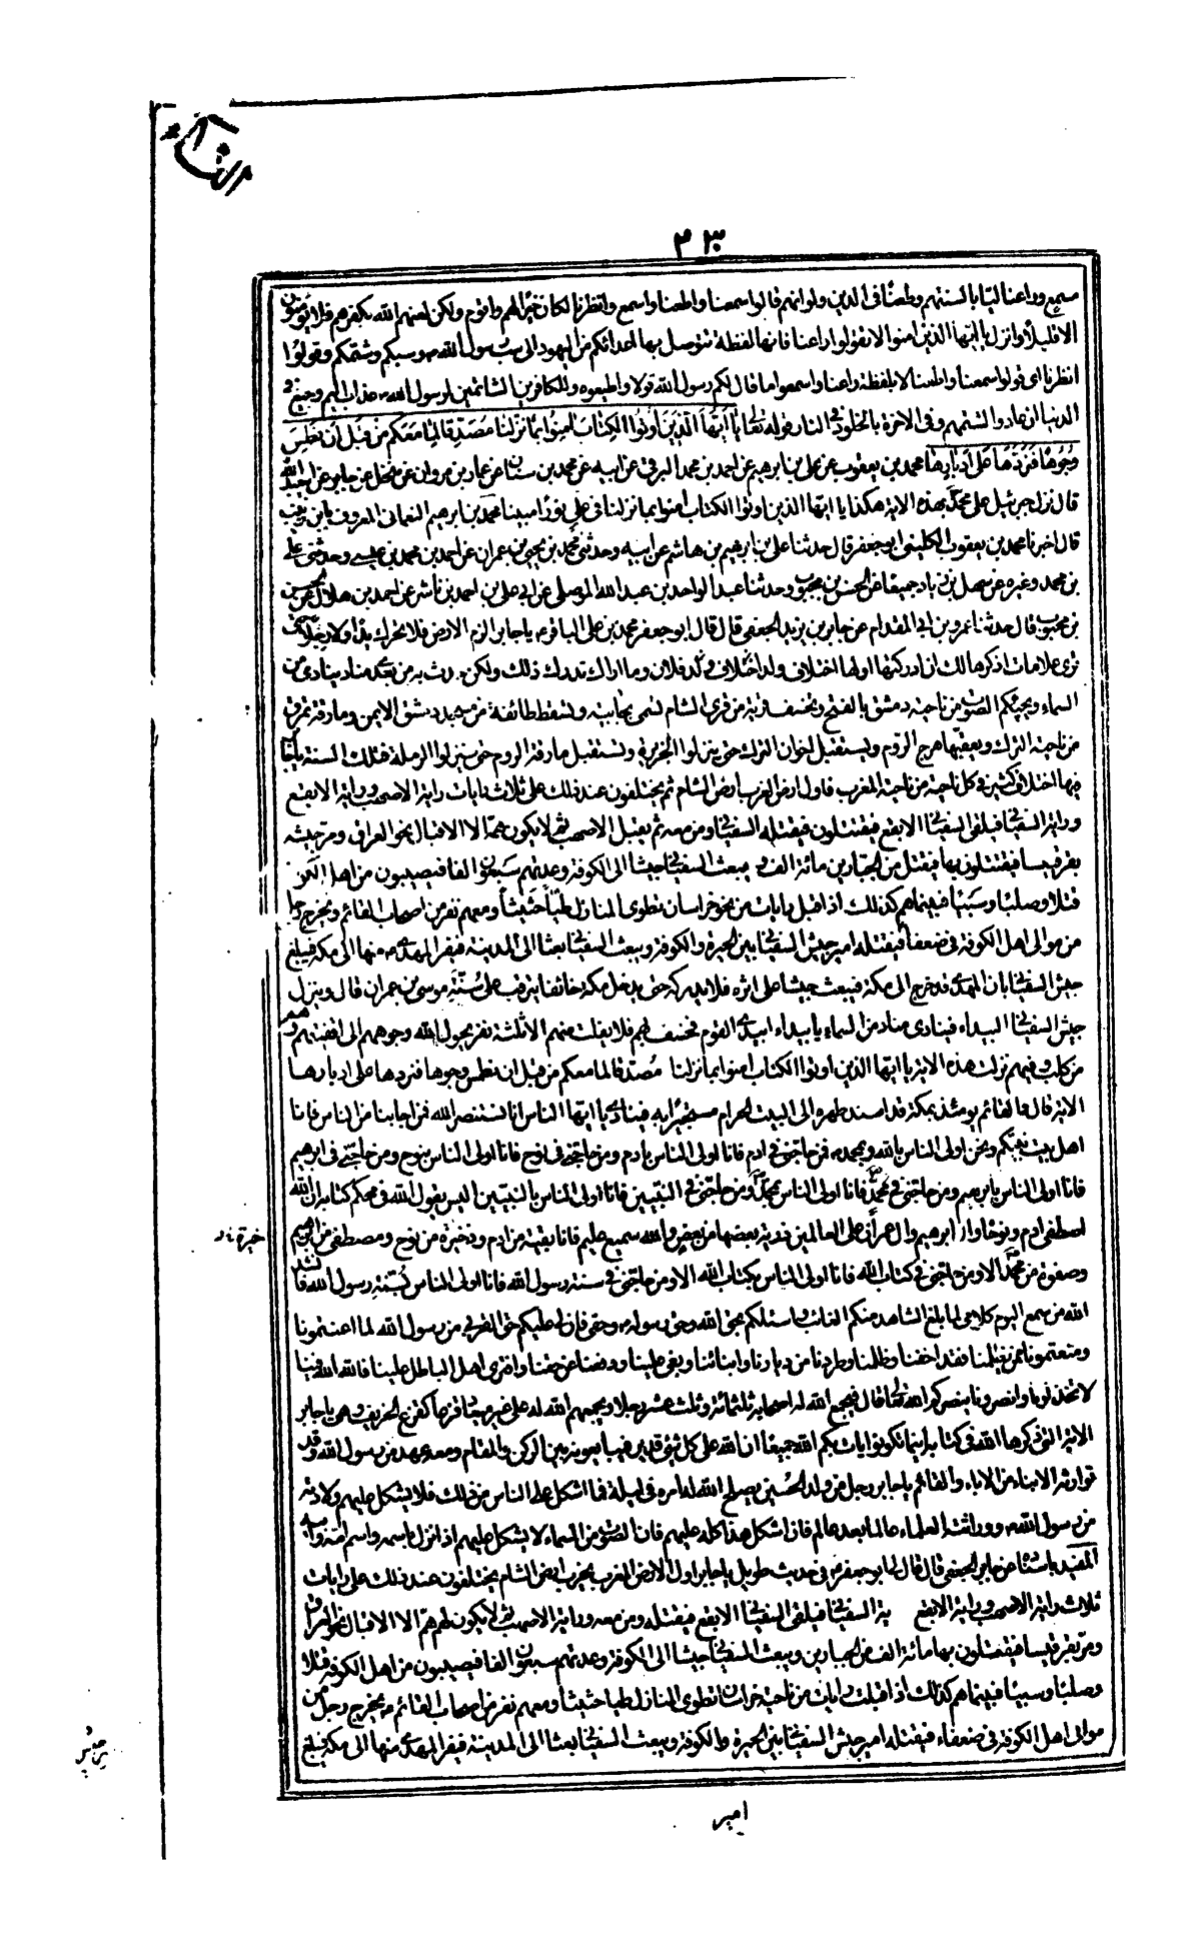 النساء
٢٣٠
مسمع وراعنا ليا بالسنتهم وطعنا فى الدين ولو انهم قالوا سمعنا واطعنا واسمع وانظرنا لكان خيرا لهم واقوم ولكن لعنهم الله بكفرهم فلا يؤمنون
الا قليلا وانزل يا ايها الذين امنوا لا تقولوا راعنا فانها لفظة يتوصل بها اعدائكم من اليهود الى سب رسول الله ص وسبكم وشتمكم وقولوا
انظرنا اى قولوا سمعنا واطعنا لا بلفظة راعنا واسمعوا ما قال لكم رسول الله قولا واطيعوه وللكافرين الشاتمين لرسول الله ص عذاب اليم وجيع فى
الدنيا ان عادوا لشتمهم وفى الاخرة بالخلود فى النار قوله تعالى يا ايها الذين اوتوا الكتاب امنوا بما نزلنا مصدقا لما معكم من قبل ان نطمس
وجوها فنردها على ادبارها محمد بن يعقوب عن على بن ابرهيم عن احمد بن محمد البرقى عن ابيه عن محمد بن سنان عن عمار بن مروان عن منخل عن جابر عن ابى عبد الله
قال نزل جبرئيل على محمد ص بهذه الاية هكذا يا ايها الذين اوتوا الكتاب امنوا بما نزلنا فى على نورا مبينا محمد بن ابرهيم النعمانى المعروف بابن زينب
قال اخبرنا محمد بن يعقوب الكلينى ابو جعفر قال حدثنا على بن ابرهيم بن هاشم عن ابيه وحدثنى محمد بن يحيى بن عمران عن احمد بن محمد بن عيسى وحدثنى على
بن محمد وغيره عن سهل بن زياد جميعا عن الحسن بن محبوب وحدثنا عبد الواحد بن عبد الله الموصلى عن ابى على بن احمد بن ناشر عن احمد بن هلال عن الحسن
بن محبوب قال حدثنا عمرو بن ابى المقدام عن جابر بن يزيد الجعفى قال قال ابو جعفر محمد بن على الباقر ع يا جابر الزم الارض فلا تحرك يدا ولا رجلا حتى
ترى علامات اذكرها لك ان ادركتها اولها اختلاف ولد فلان وما اراك تدرك ذلك ولكن حدث به من بعدى مناد ينادى من
السماء ويجيئكم الصوت من ناحية دمشق بالفتح ويخسف قرية من قرى الشام تسمى بجابية وتسقط طائفة من مسجد دمشق الايمن ومارقة تمرق
من ناحية الترك ويعقبها هرج الروم ويستقبل اخوان الترك حتى ينزلوا الجزيرة وتستقبل مارقة الروم حتى ينزلوا الرملة فتلك السنة يا جابر
فيها اختلاف كثير فى كل ناحية من ناحية المغرب فاول ارض الغرب ارض الشام ثم يختلفون عند ذلك على ثلاث رايات راية الاصهب وراية الابقع
وراية السفيانى فيلقى السفيانى الابقع فيقتتلون فيقتله السفيانى ومن معه ثم يقتل الاصهب ثم لا يكون همه الا الاقبال نحو العراق ومر جيشه
بقرقيسا فيقتتلون بها فيقتل من الجبارين مائة الف ويبعث السفيانى جيشا الى الكوفة وعدتهم سبعون الفا فيصيبون من اهل الكوفة
قتلا وصلبا وسبيا فبينما هم كذلك اذ اقبل رايات من نحو خراسان تطوى المنازل طيا حثيثا ومعهم نفر من اصحاب القائم ويخرج رجل
من موالى اهل الكوفة فى ضعفاء فيقتله امير جيش السفيانى بين الحيرة والكوفة ويبعث السفيانى بعثا الى المدينة فيفر المهدى ع منها الى مكة فيبلغ
جيش السفيانى بان المهدى قد خرج الى مكة فيبعث جيشا على اثره فلا يدركه حتى يدخل مكة خائفا يترقب على سنة موسى بن عمران قال وينزل
جيش السفيانى البيداء فينادى مناد من السماء يا بيداء ابيدى القوم فيخسف بهم فلا يفلت منهم الا ثلثة نفر يحول الله وجوههم الى اقفيتهم وهم
من كلب وفيهم نزلت هذه الاية يا ايها الذين اوتوا الكتاب امنوا بما نزلنا مصدقا لما معكم من قبل ان نطمس وجوها فنردها على ادبارها
الاية قال والقائم يومئذ بمكة قد اسند ظهره الى البيت الحرام مستجيرا به فينادى يا ايها الناس انا نستنصر الله فمن اجابنا من الناس فانا
اهل بيت نبيكم ونحن اولى الناس بالله وبمحمد ص فمن حاجنى فى ادم فانا اولى الناس بادم ومن حاجنى فى نوح فانا اولى الناس بنوح ومن حاجنى فى ابرهيم
فانا اولى الناس بابرهيم ومن حاجنى فى محمد ص فانا اولى الناس بمحمد ص ومن حاجنى فى النبيين فانا اولى الناس بالنبيين اليس يقول الله فى محكم كتابه ان الله
اصطفى ادم ونوحا وال ابرهيم وال عمران على العالمين ذرية بعضها من بعض والله سميع عليم فانا بقية من ادم وذخيرة من نوح ومصطفى من ابرهيم
خيرة
وصفوة من محمد ص الا ومن حاجنى فى كتاب الله فانا اولى الناس بكتاب الله الا ومن حاجنى فى سنة رسول الله فانا اولى الناس بسنة رسول الله فانشد
الله من سمع اليوم كلامى لما بلغ الشاهد منكم الغائب واسئلكم بحق الله وحق رسوله ص وحقى فان لى عليكم حق القربى من رسول الله لما اعنتمونا
ومنعتمونا ممن يظلمنا فقد اخفنا وظلمنا وطردنا من ديارنا وابنائنا وبغى علينا ودفعنا عن حقنا وافترى اهل الباطل علينا فالله الله فينا
لا تخذلونا وانصرونا ينصركم الله تعالى قال فيجمع الله له اصحابه ثلثمائة وثلث عشر رجلا ويجمعهم الله له على غير ميعاد قزعا كقزع الخريف وهى يا جابر
الاية التى ذكرها الله فى كتابه اينما تكونوا يات بكم الله جميعا ان الله على كل شئ قدير فيبايعونه بين الركن والمقام ومعه عهد من رسول الله وقد
توارثه الابناء من الاباء والقائم يا جابر رجل من ولد الحسين يصلح الله له امره فى ليلة فما اشكل على الناس من ذلك فلا يشكل عليهم ولادته
من رسول الله ص ووراثته العلماء عالما بعد عالم فان اشكل هذا كله عليهم فان الصوت من السماء لا يشكل عليهم اذا نزل باسمه واسم امه وابيه
المفيد باسناده عن جابر الجعفى قال قال لى ابو جعفر ع فى حديث طويل يا جابر اول الارض الغرب يخرب ارض الشام يختلفون عند ذلك على رايات
ثلاث راية الاصهب وراية الابقع ية السفيانى فيلقى السفيانى الابقع فيقتله ومن معه وراية الاصهب ثم لا يكون لهم هم الا الاقبال نحو العراق
ومر بقرقيسا فيقتتلون بها مائة الف من الجبارين ويبعث السفيانى جيشا الى الكوفة وعدتهم سبعون الفا فيصيبون من اهل الكوفة قتلا
وصلبا وسبيا فبينما هم كذلك اذ اقبلت رايات من ناحية خراسان تطوى المنازل طيا حثيثا ومعهم نفر من اصحاب القائم ع ويخرج رجل من
موالى اهل الكوفة فى ضعفاء فيقتله امير جيش السفيانى بين الحيرة والكوفة ويبعث السفيانى بعثا الى المدينة فيفر المهدى منها الى مكة فيبلغ
امير